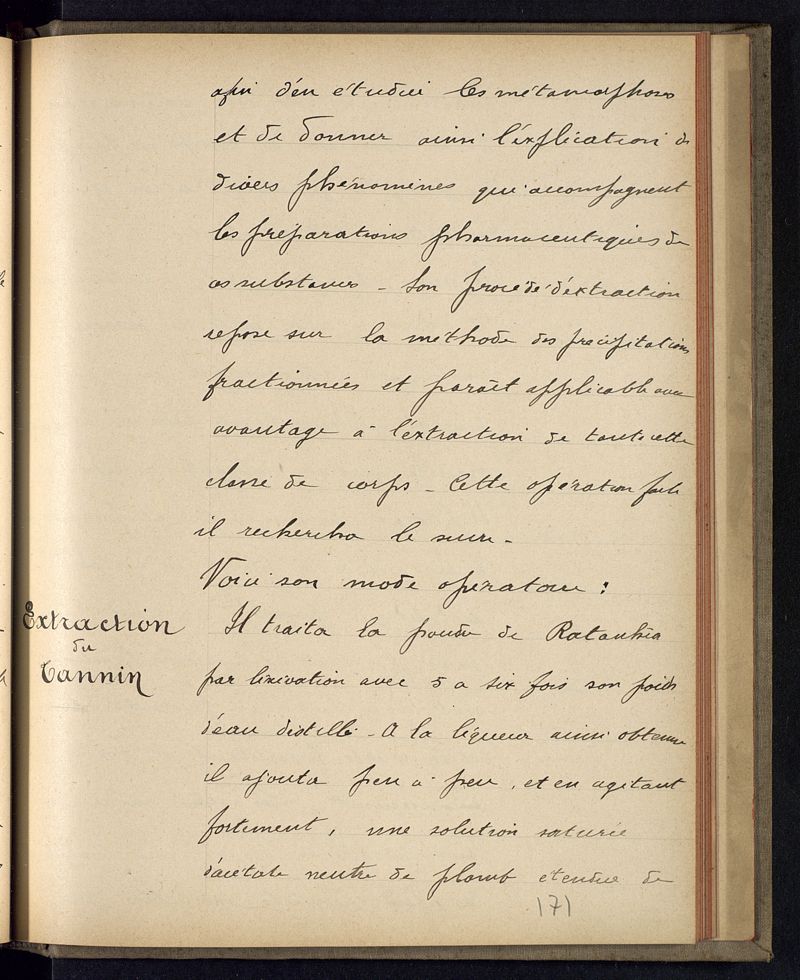 afin d'en étudier les métamorphoses
et de donner ainsi l'éxplication de
divers phénomènes qui accompagnent
les préparations pharmaceutiques de
ces substances - Son procédé d'éxtraction
repose sur la méthode des précipitations
fractionnées et paraît applicable avec
avantage à l'éxtraction de toute cette
classe de corps - Cette opération faite
il rechercha le sucre -
Voici son mode opératoire :
Extraction
du
Tannin
Il traita la poudre de Ratanhia
par lixivation avec 5 a six fois son poids
d'eau distillé - A la liqueur ainsi obtenue
il ajouta peu à peu, et en agitant
fortement, une solution saturée
d'acétate neutre de plomb etendue de
171